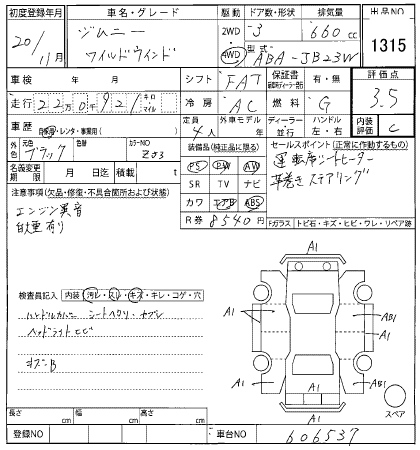 初度登録年月 車名・グレード 駆動 ドア数・形状 排気量 出品NO
20/11月 ジムニー ワイルドウインド 2WD 4WD 3 660 cc 1315
型式 ABA-JB23W
車検 年 月 シフト FAT 保証書 有・無 評価点 3.5
走行 22万0千921 キロ・マイル 冷房 AC 燃料 G
車歴 自家用・レンタ・事業用( ) 定員 4人 外車モデル 年 ディーラー 並行 ハンドル 左・右 内装評価 C
外色 元色 ブラック 色替 カラーNO Z03
装備品(純正品に限る) セールスポイント(正常に作動するもの)
名義変更期限 月 日迄 積載 t
PS PW AW 運転席シートヒーター
SR TV ナビ 革巻きステアリング
カワ エアB ABS
R券 8540円
注意事項(欠品・修復・不具合箇所および状態)
エンジン異音
Fガラス トビ石・キズ・ヒビ・ワレ・リペア跡
検査員記入 内装(汚レ・スレ・キズ・キレ・コゲ・穴
ヘッドライトヒビ
キズB
A1
A1 A1
A1 AB1
A1 AB1
A1
A1
スペア
長さ cm 幅 cm 高さ cm
登録NO 車台NO 606537